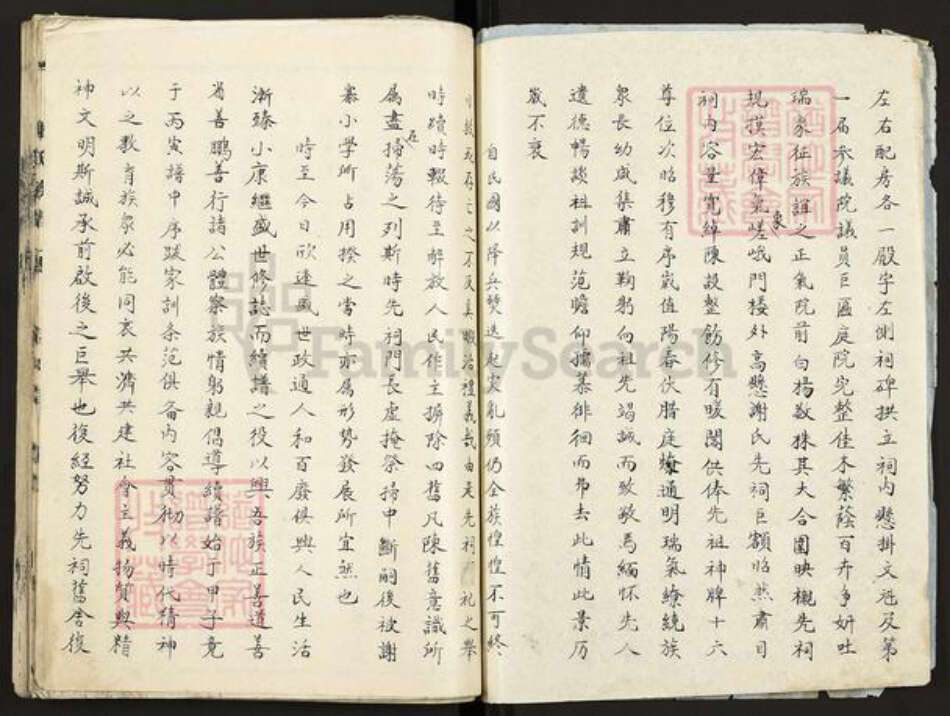 左右配房各一殿宇左側祠碑拱立祠內懸掛文魁及第
一届參議院議員巨匾庭院完整佳木繁蔭百卉争妍吐
瑞象征族誼之正氣院前白楊数株其大合圍映襯先祠
規模宏偉氣象嵯峨門楼外高懸謝氏先祠巨額昭然肅目
祠內容量寬綽陳設整飭修有暖閣供俸先祖神牌十六
尊位次昭穆有序嵗值陽春伏腊庭燎通明瑞氣繚繞族
衆長幼咸集肅立鞠躬向祖先竭誠而致敬焉緬怀先人
遺德暢談祖訓規范瞻仰孺慕徘徊而弗去此情此景历
嵗不衰
自民國以降兵燹迭起灾亂頻仍全族惶惶不可終
之不及其暇治禮義哉由是先祠礼之舉
時蹟時輟待至解放人民作主摒除四舊凡陳舊意識所
属盡在掃荡之列斯時先祠門長虚掩祭掃中斷嗣後被謝
寨小學所占用揆之當時亦属形势發展所宜然也
時至今日欣逢盛世政通人和百廢俱興人民生活
漸臻小康繼盛世修誌而續譜之役以興吾族正善道善
省善鵬善行諸公體察族情躬親倡導續譜始于甲子竟
于丙寅譜中序跋家訓条范俱备內容贯彻以時代精神
以之教育族衆必能同衷共濟共建社会主義物質與精
神文明斯誠承前啟後之巨舉也復經努力先祠舊舍復
FamilySearch